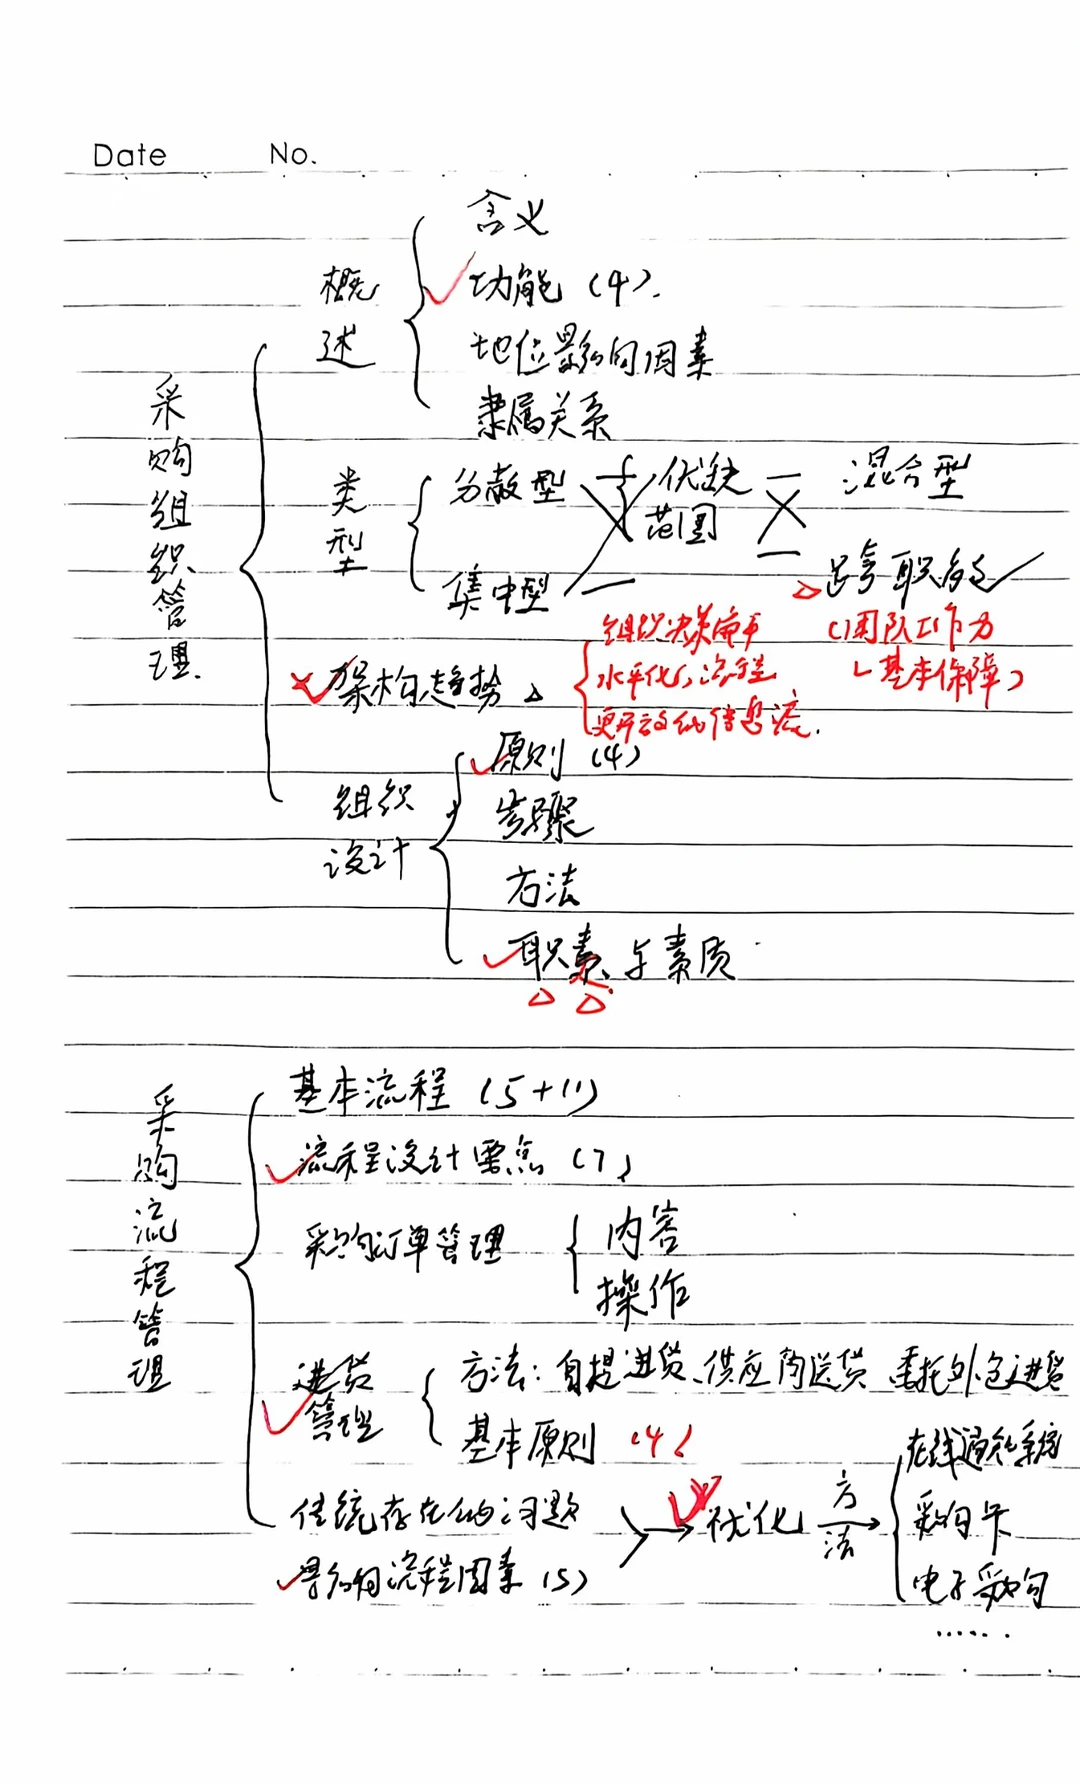 Date No.
含义
概述
功能（4）.
地位影响因素
隶属关系
采购组织管理.
类型
分散型
优缺
混合型
范围
集中型
跨职能
组织决策扁平
（团队工作为
水平化，流程
基本保障）
架构趋势
信息流.
原则（4）
组织设计
步骤
方法
职素、与素质
基本流程（5+11）
采购流程管理
流程设计要点（7）
采购订单管理
内容
操作
进货管理
方法：自提进货、供应商送货、委托外包进货
基本原则（4）
在线通知系统
传统存在的问题
优化
方法
采购卡
影响流程因素（5）
电子采购
……